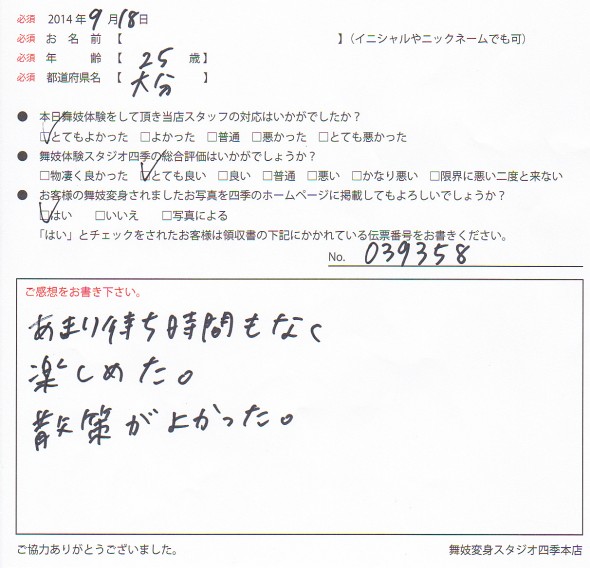 必須 2014年9月18日
必須 お名前【 】（イニシャルやニックネームでも可）
必須 年 齢【 25 歳】
必須 都道府県名【 大分 】
● 本日舞妓体験をして頂き当店スタッフの対応はいかがでしたか？
☑とてもよかった □よかった □普通 □悪かった □とても悪かった
● 舞妓体験スタジオ四季の総合評価はいかがでしょうか？
□物凄く良かった ☑とても良い □良い □普通 □悪い □かなり悪い □限界に悪い二度と来ない
● お客様の舞妓変身されましたお写真を四季のホームページに掲載してもよろしいでしょうか？
☑はい □いいえ □写真による
「はい」とチェックをされたお客様は領収書の下記にかかれている伝票番号をお書きください。
No. 039358
ご感想をお書き下さい。
あまり待ち時間もなく
楽しめた。
散策がよかった。
ご協力ありがとうございました。
舞妓変身スタジオ四季本店